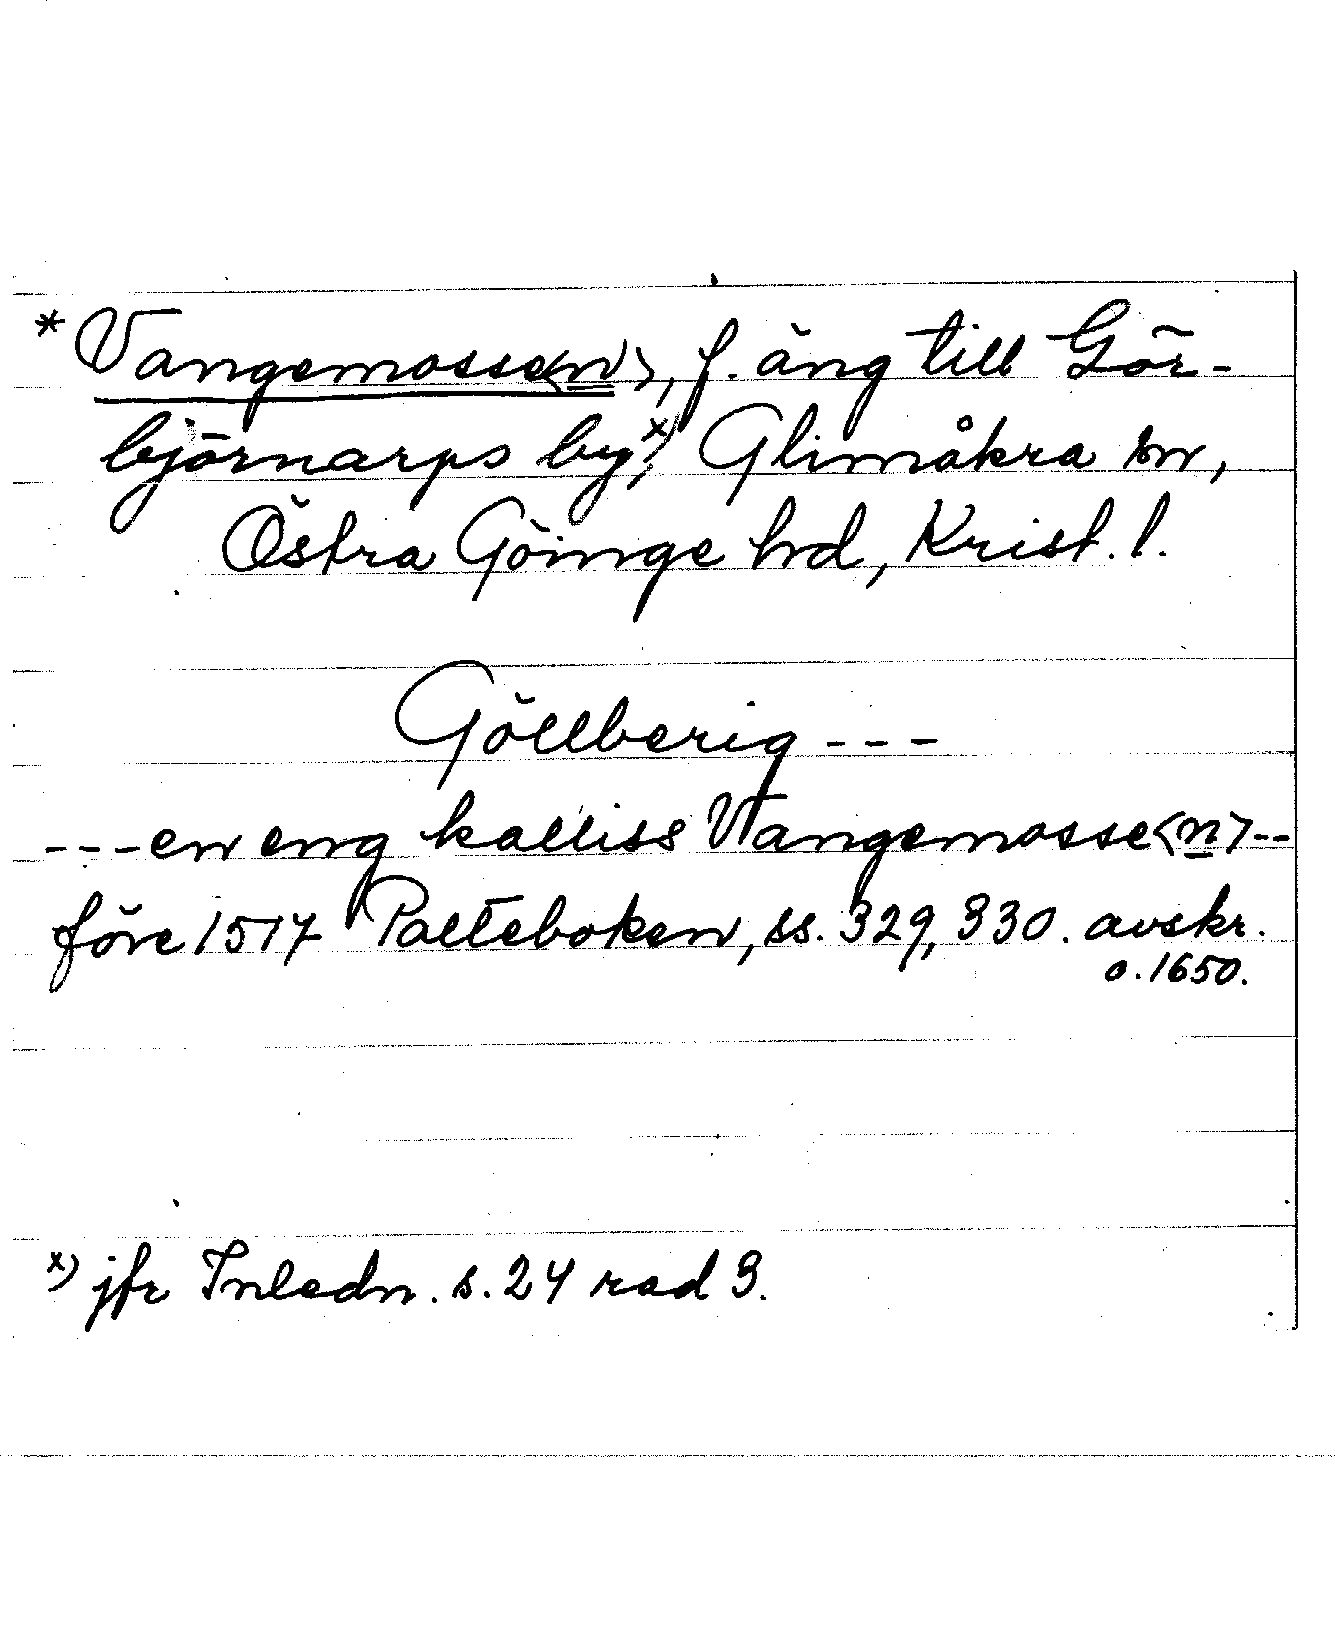 * Vangemosse<n>, f. äng till Gör-
björnarps by,x) Glimåkra sn,
Östra Göinge hd, Krist. l.
Göllberig ---
--- en eng kalliss Vangemosse<n> --
före 1517 Palteboken, ss. 329, 330. avskr.
o. 1650.
x) jfr Inledn. s. 24 rad 3.